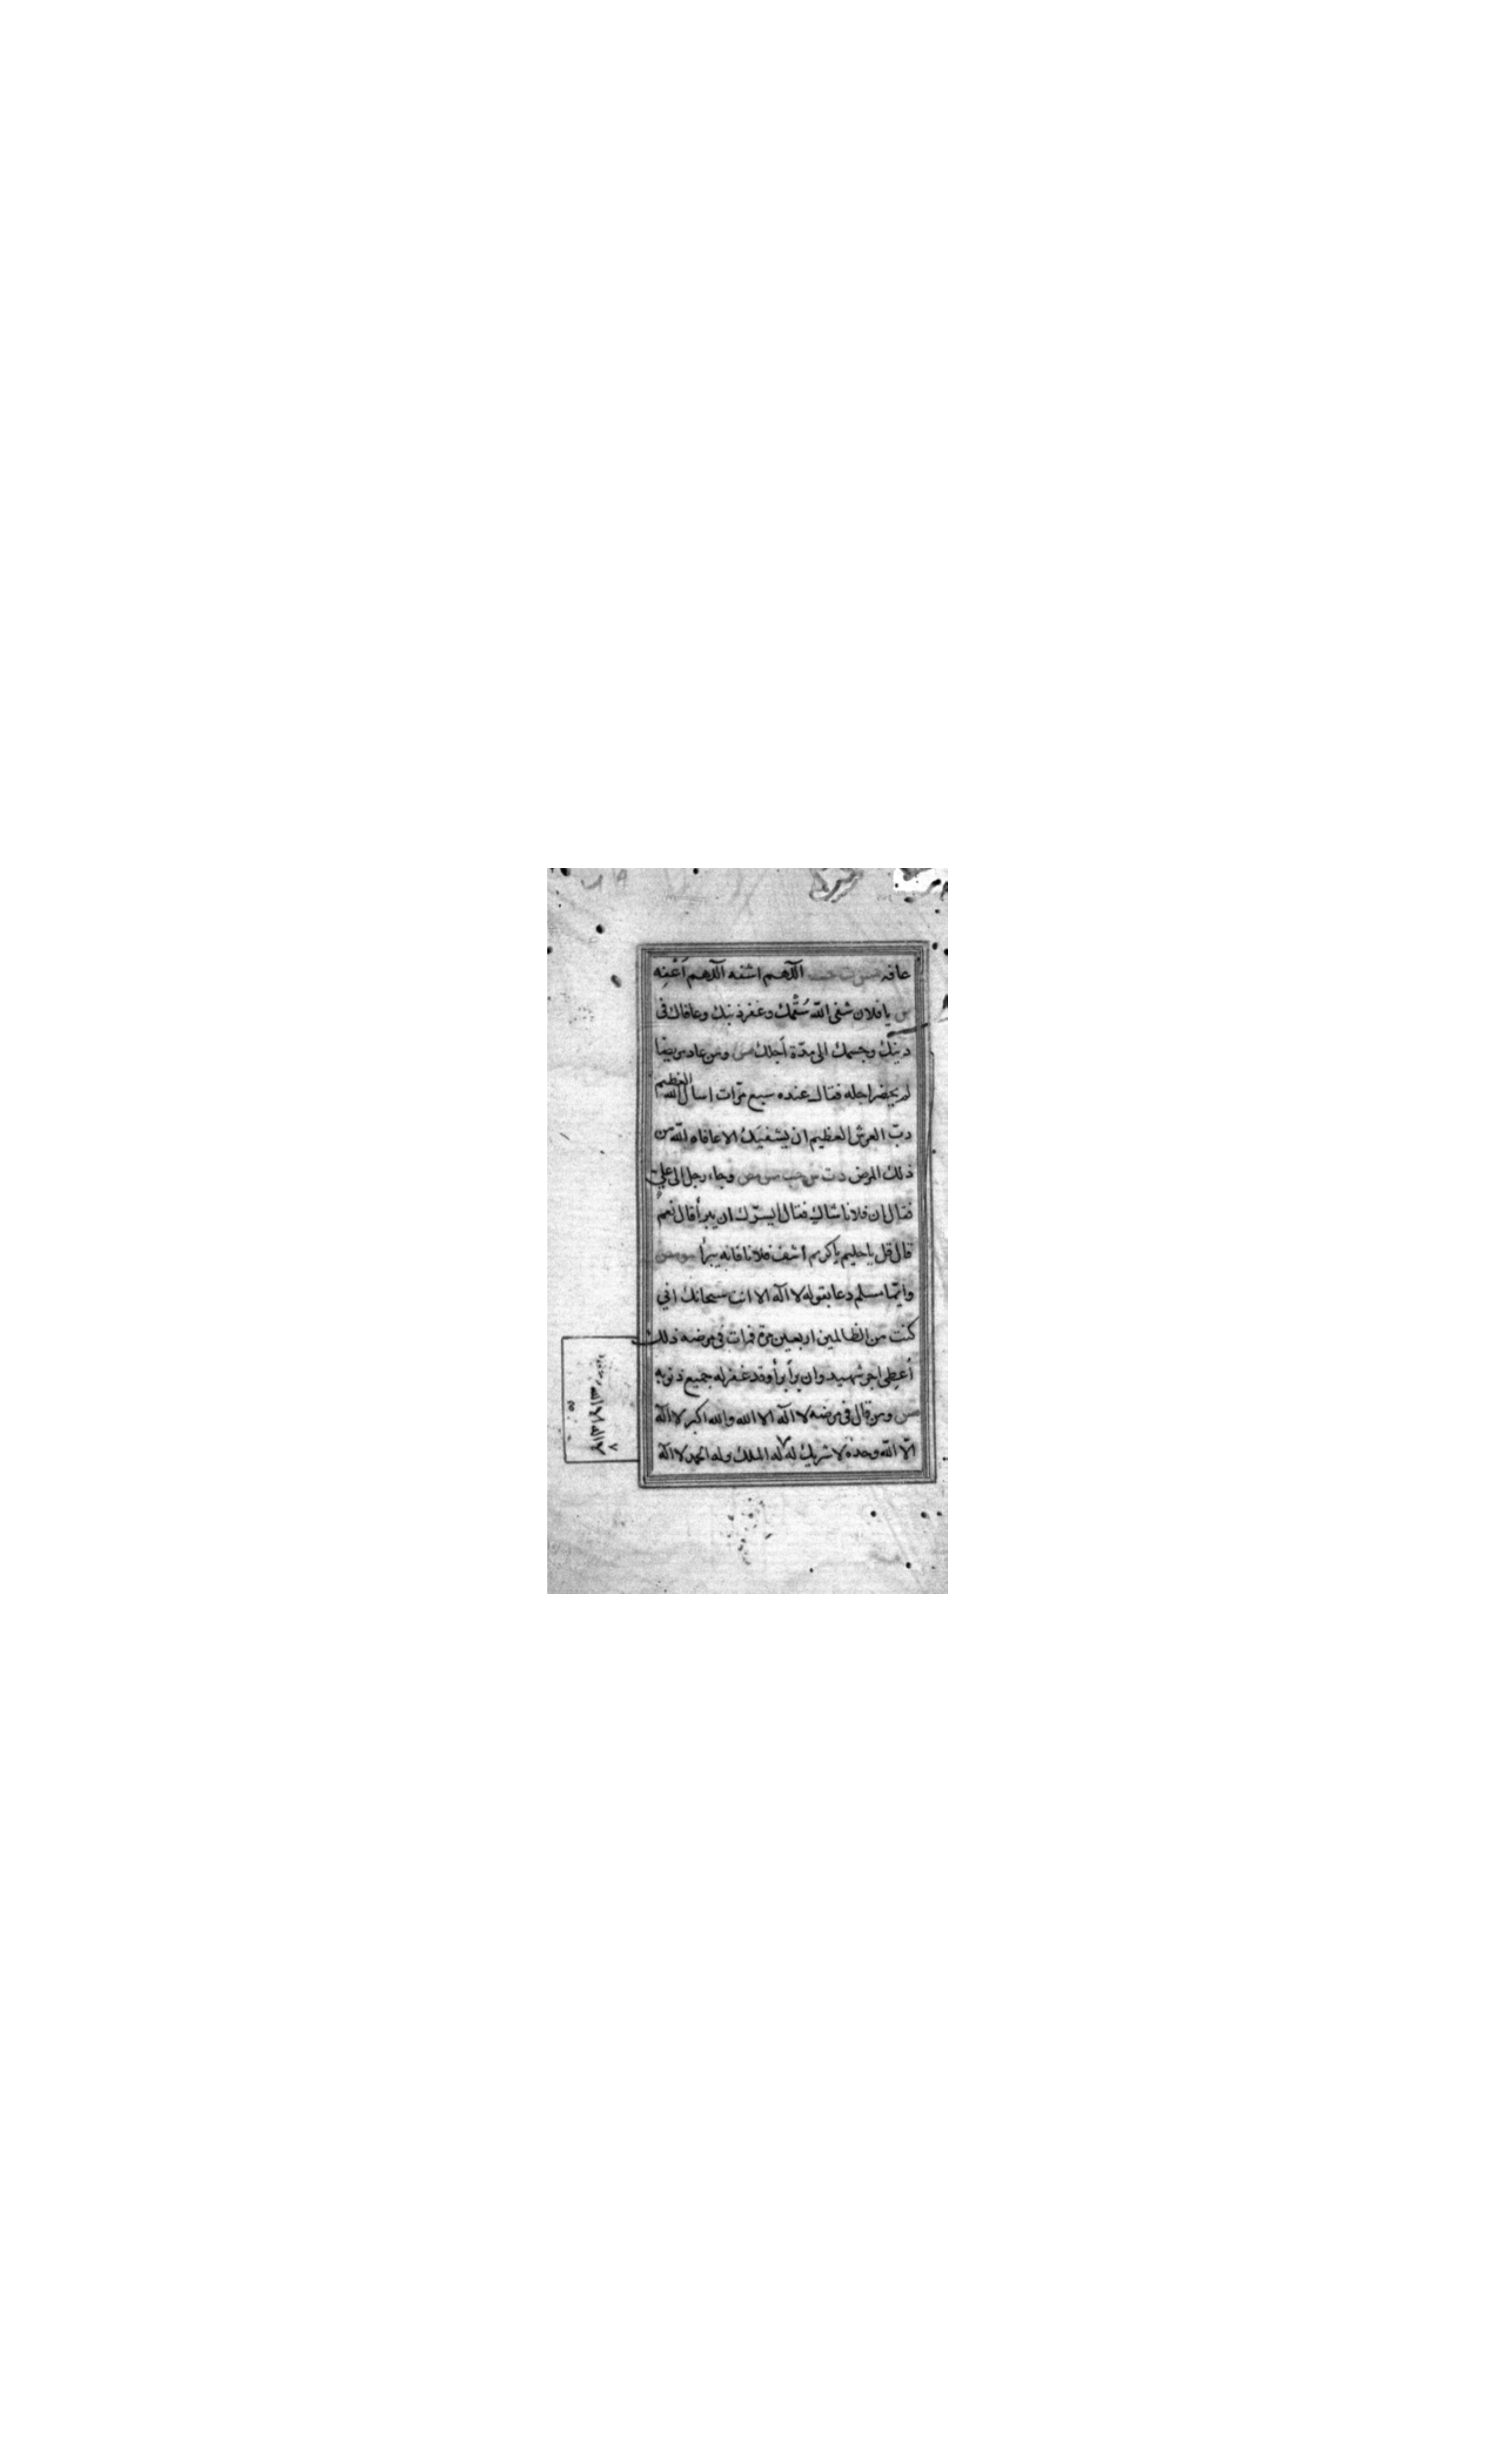 عافه مس ت حب اللهم اشفه اللهم أعفه
س يا فلان شفى الله سقمك وغفر ذنبك وعافاك فى
دينك وجسمك الى مدة أجلك مس ومن عاد مريضا
لم يحضر اجله فقال عنده سبع مرّات اسال الله العظيم
ربّ العرش العظيم ان يشفيك الا عافاه الله من
ذلك المرض دت س حب مس مص وجاء رجل الى علي
فقال ان فلانا شاك فقال أيسرّك ان يبرأ قال نعم
قال قل يا حليم يا كريم اشف فلانا فانه يبرأ مو مص
وايّما مسلم دعا بقوله لا اله الا انت سبحانك انى
كنت من الظالمين اربعين مرة فمات فى مرضه ذلك
أعطى اجر شهيد وان برأ برأ وقد غفر له جميع ذنوبه
مس ومن قال فى مرضه لا اله الا الله والله اكبر لا اله
الّا الله وحده لا شريك له له الملك وله الحمد لا اله
لا اله الا الله